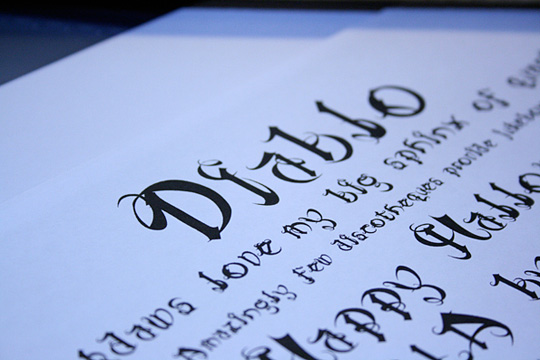 Diablo
kdaws love my big sphinx of
Amazingly few discotheques provide
Happy Hallo